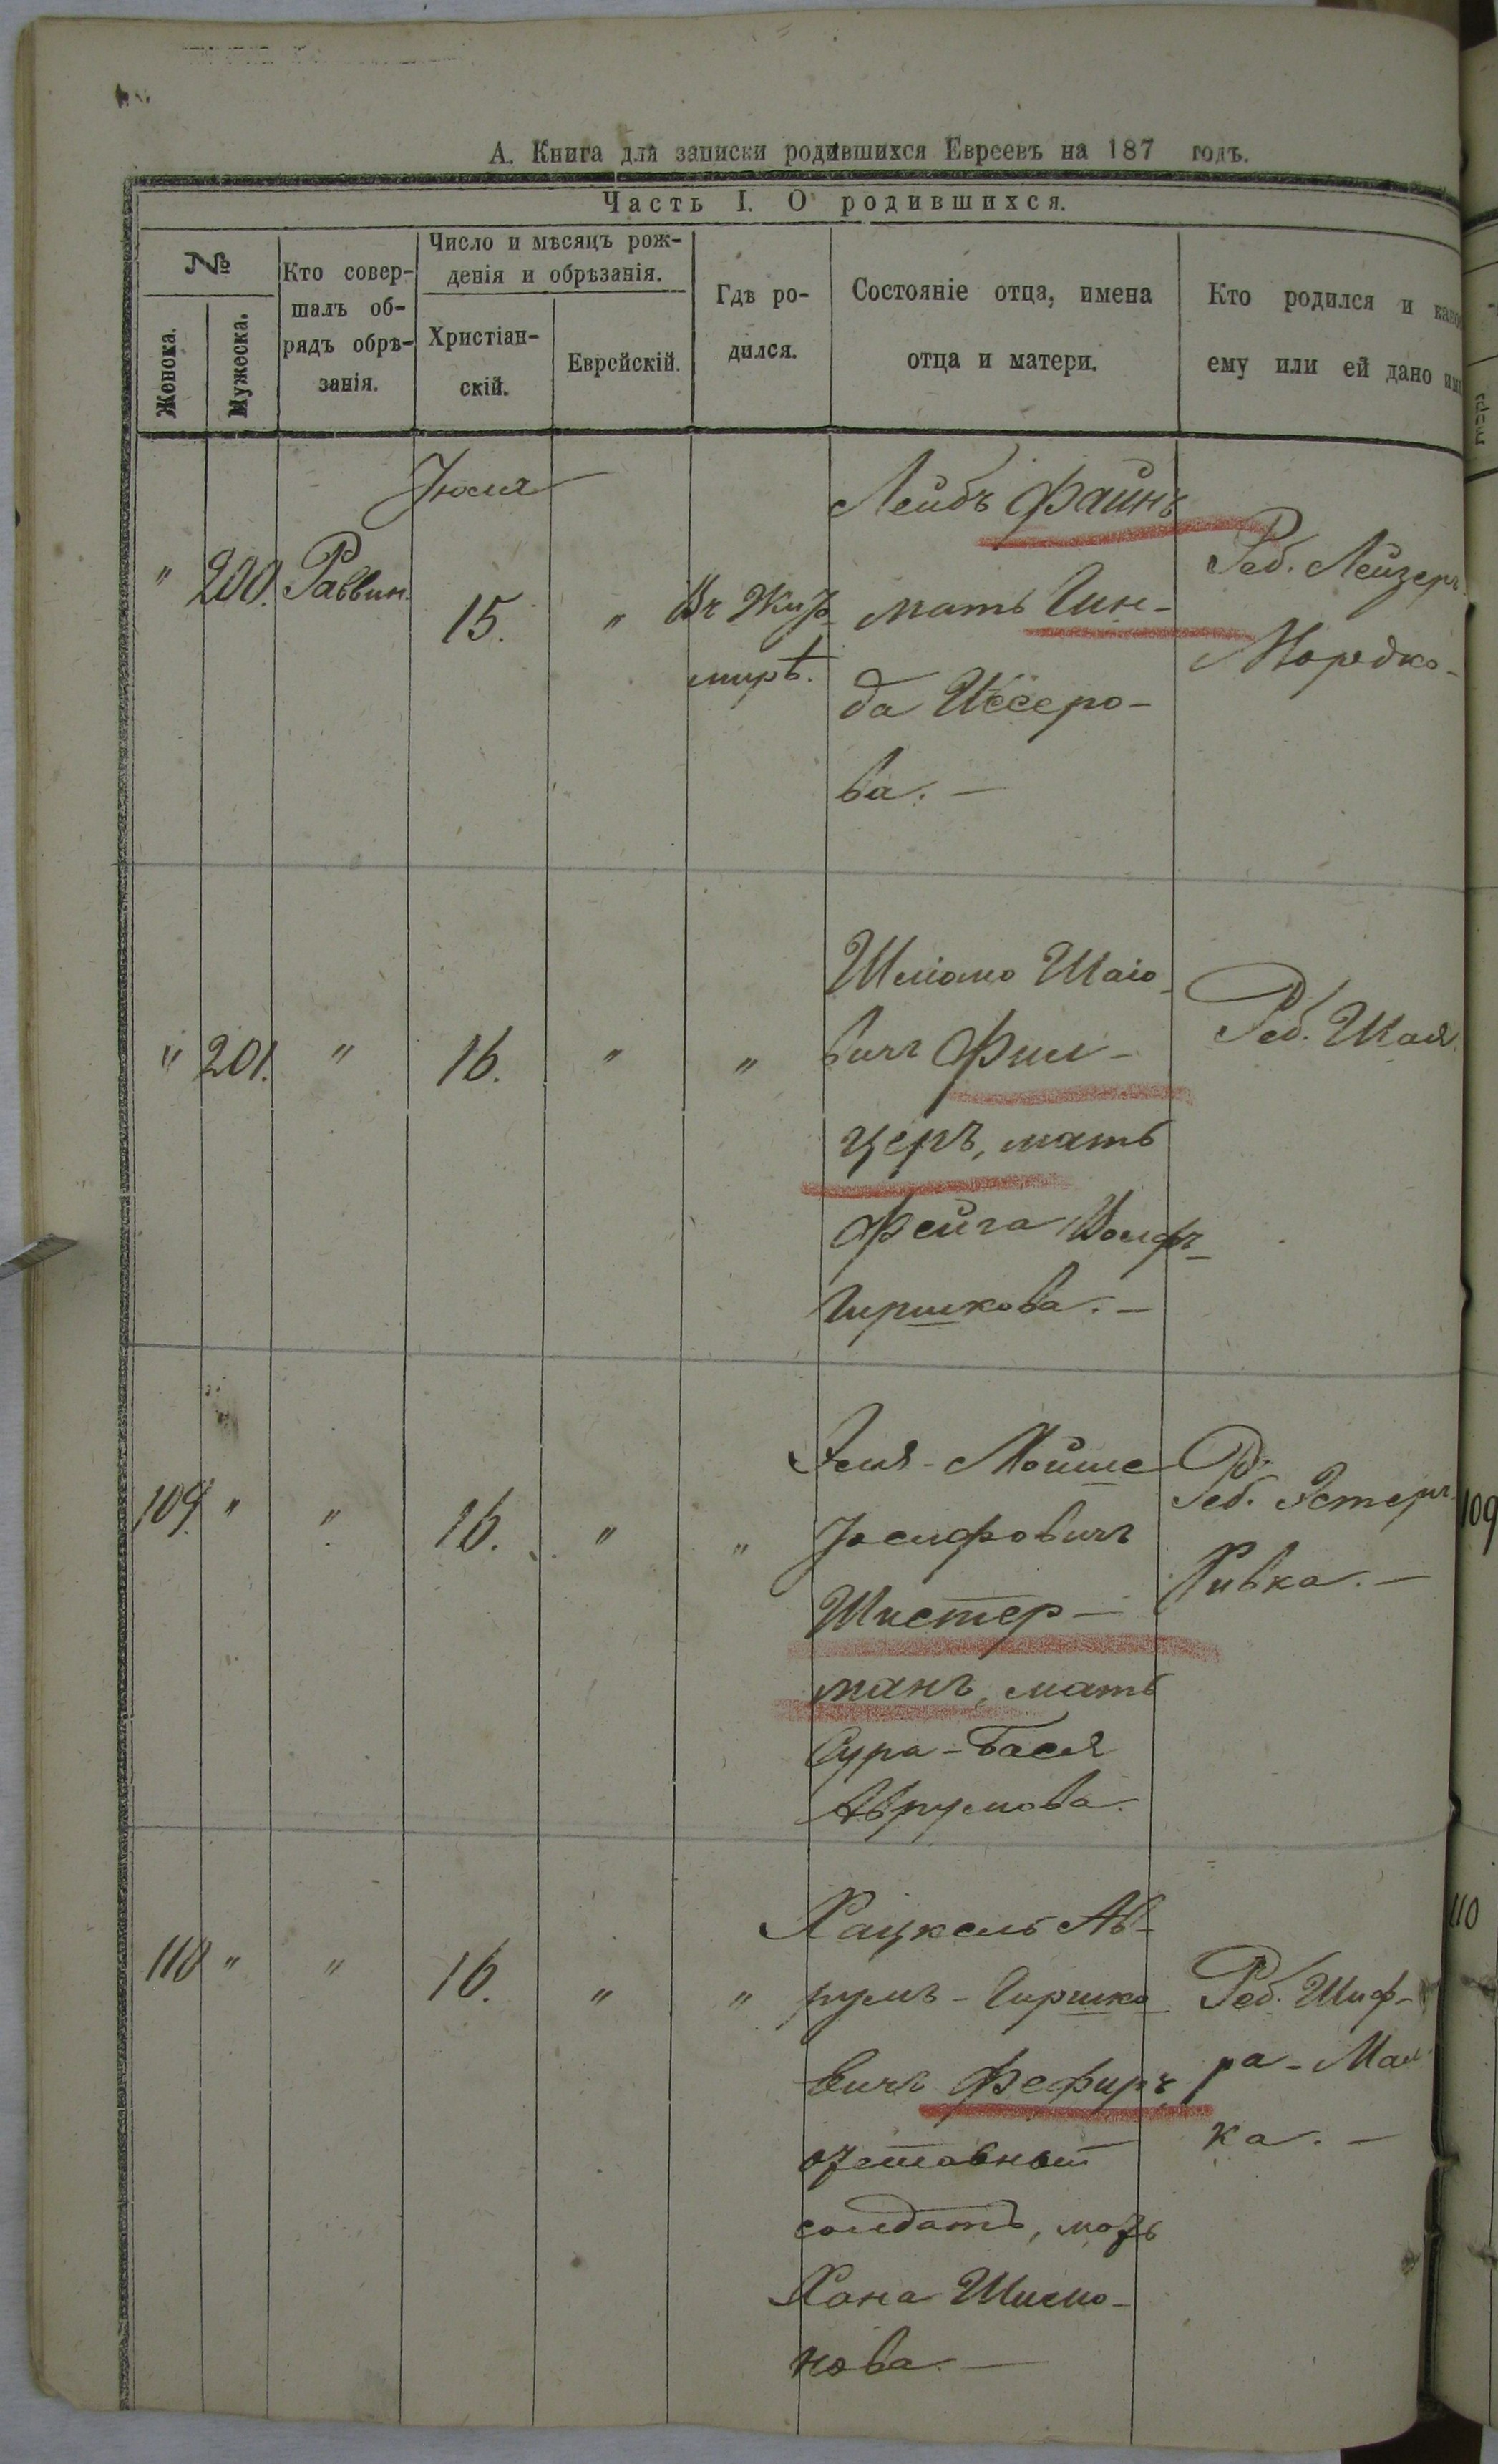 А. Книга для записки родившихся Евреевъ на 187 годъ.
Часть I. О родившихся.
№
Женска.
Мужеска.
Кто совер-
шалъ об-
рядъ обрѣ-
занія.
Число и мѣсяцъ рож-
денія и обрѣзанія.
Христіан-
скій.
Еврейскій.
Гдѣ ро-
дился.
Состояніе отца, имена
отца и матери.
Кто родился и
ему или ей дано
Іюля
" 200. Раввин. 15. "
Въ Жит
мирѣ.
Лейбъ Файнъ
мать Гин-
да Иссеро-
ва. —
Реб. Лейзеръ
Мордко-
" 201. " 16. " "
Шліомо Шаіо-
вичъ Фил-
церъ, мать
Фейга Вольфъ-
Гершкова. —
Реб. Шая.
109. " " 16. " "
Эля-Мойше
Іосифовичъ
Шистер-
манъ, мать
Сура-Бася
Аврумова.
Реб. Эстеръ
Ривка. —
109
110 " " 16. " "
Хацкель Ав-
румъ-Гершко
вичъ Фефиръ,
отставный
солдатъ, мать
Хана Шимо-
нова. —
Реб. Шиф-
ра-Мал
ка. —
110